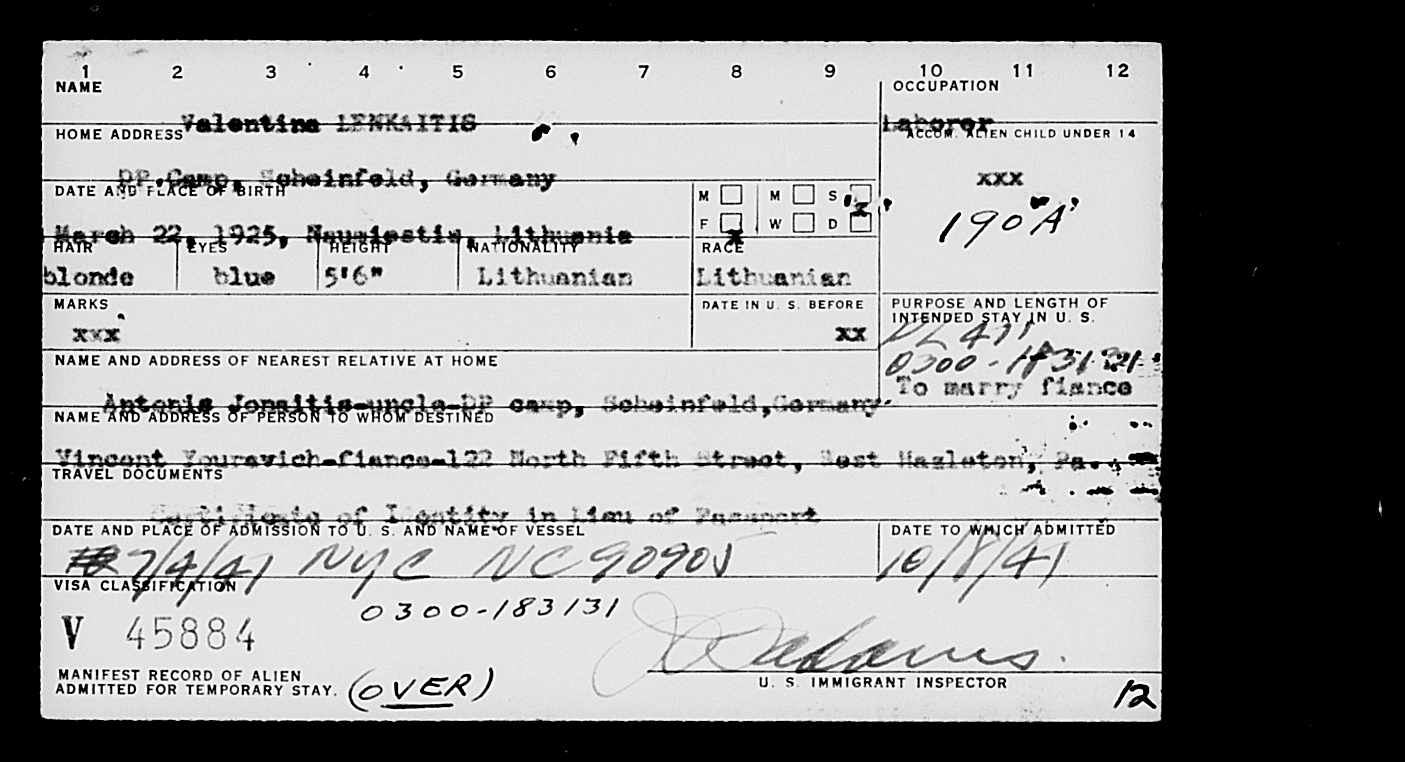 1 2 3 4 5 6 7 8 9 10 11 12
NAME OCCUPATION
Valentina LENKAITIS Laborer
HOME ADDRESS ACCOM. ALIEN CHILD UNDER 14
DP.Camp, Scheinfeld, Germany xxx
DATE AND PLACE OF BIRTH M M S x
190"A"
F x W D
March 22, 1925, Lithuania
HAIR EYES HEIGHT NATIONALITY RACE
blonde blue 5'6" Lithuanian Lithuanian
MARKS DATE IN U. S. BEFORE PURPOSE AND LENGTH OF
INTENDED STAY IN U. S.
xxx xx
0300-
To marry fiance
NAME AND ADDRESS OF NEAREST RELATIVE AT HOME
Antonis Jonaitis-uncle-DP camp, Scheinfeld,Germany.
NAME AND ADDRESS OF PERSON TO WHOM DESTINED
Vincent Youravich-fiance-122 North Fifth Street, West Hazleton, Pa.
TRAVEL DOCUMENTS
Certificate of Identity in Lieu of Passport
DATE AND PLACE OF ADMISSION TO U. S. AND NAME OF VESSEL DATE TO WHICH ADMITTED
NYC NC90905
VISA CLASSIFICATION
0300-183131
V 45884
MANIFEST RECORD OF ALIEN
ADMITTED FOR TEMPORARY STAY. (OVER) U. S. IMMIGRANT INSPECTOR
12